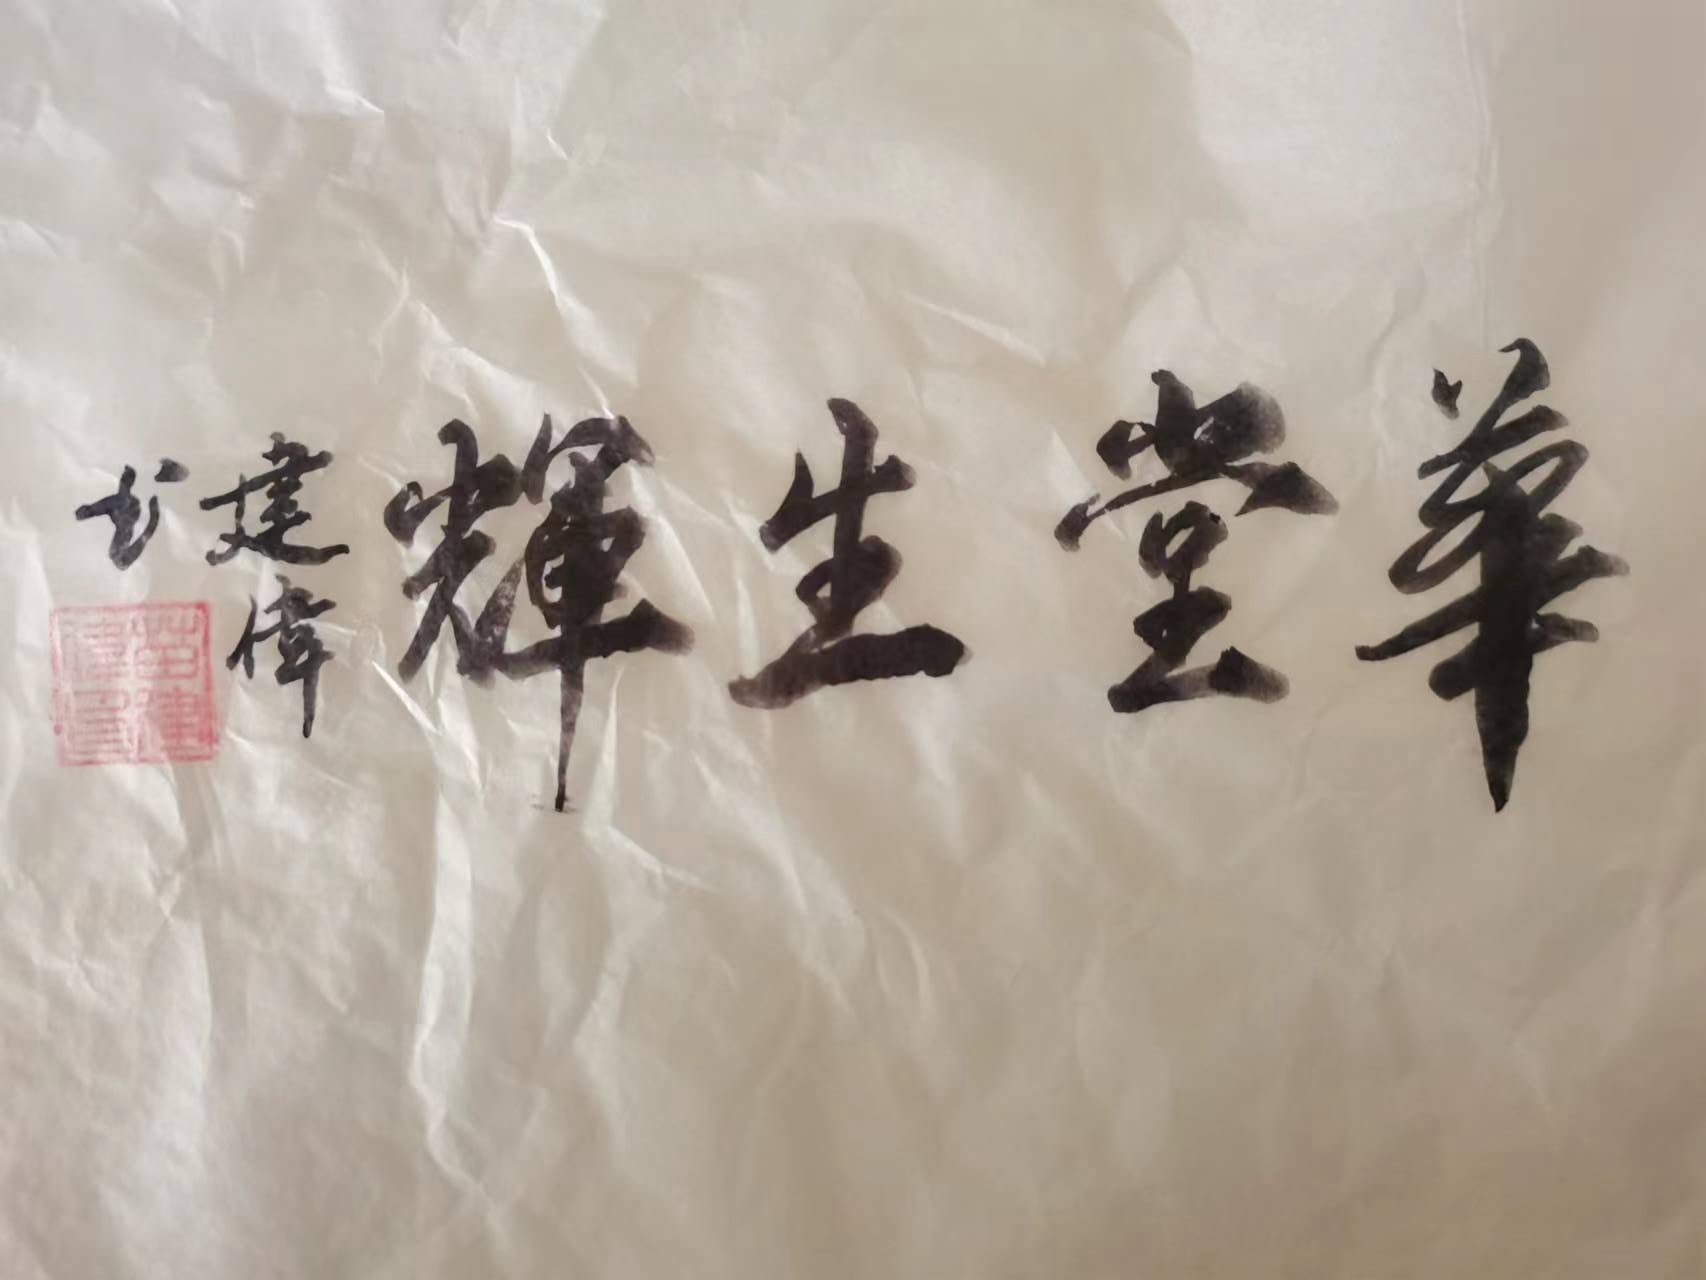 華堂生輝
建偉
书